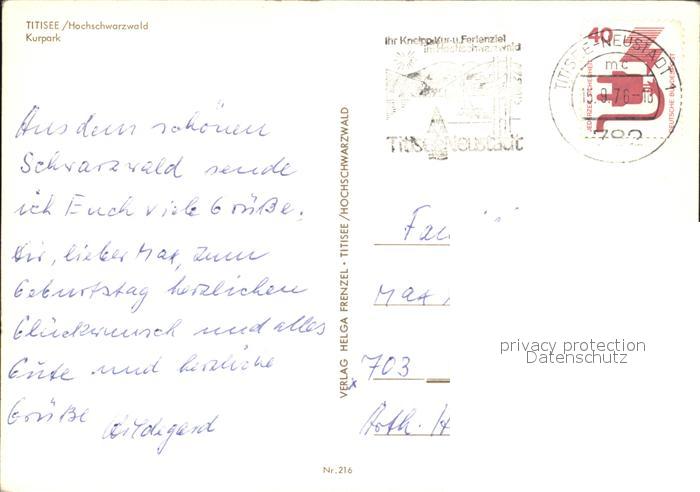 TITISEE /Hochschwarzwald
Kurpark
Aus dem schönen
Schwarzwald sende
ich Euch viele Grüße.
Dir, lieber Max, zum
Geburtstag herzlichen
Glückwunsch und alles
Gute und herzliche
Grüße Hildegard
VERLAG HELGA FRENZEL · TITISEE /HOCHSCHWARZWALD
Nr. 216
Ihr Kneipp-Kur-u. Ferienziel
im Hochschwarzwald
Titisee-Neustadt
TITISEE-NEUSTADT 1
mc
9.76-18
782
40
JEDERZEIT SICHERHEIT
DEUTSCHE BUNDESPOST
Fam
Max
703
privacy protection
Datenschutz